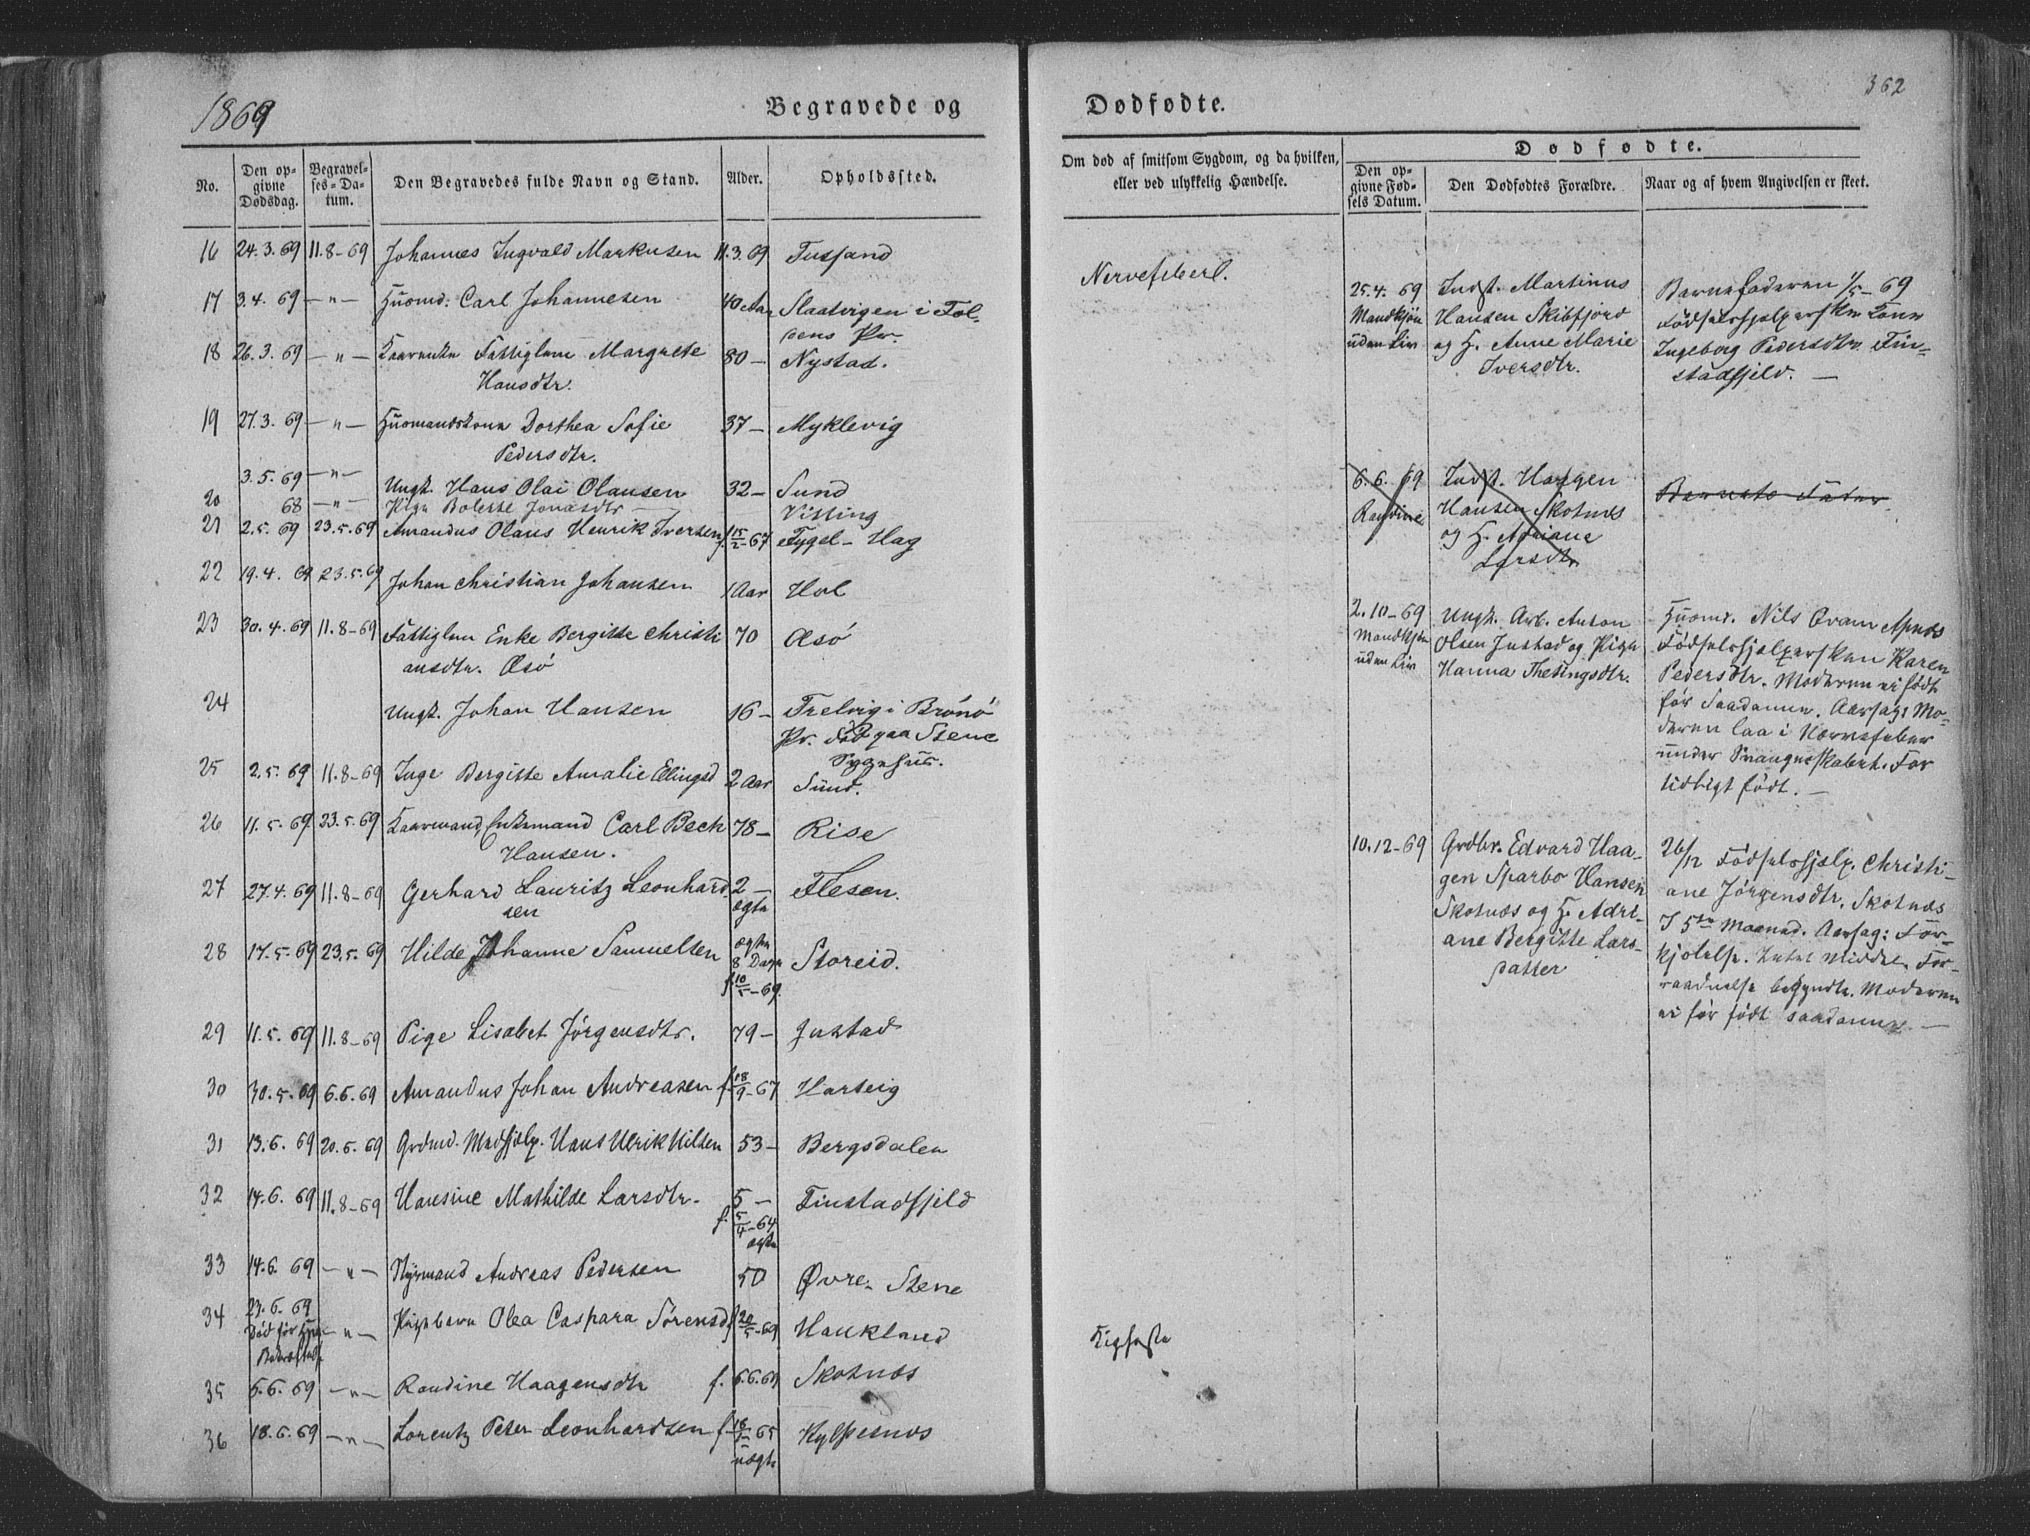 1869
Begravede og
Dødfødte.
362
No.
Den opgivne Dødsdag.
Begravelses-Datum.
Den Begravedes fulde Navn og Stand.
Alder.
Opholdssted.
Om død af smitsom Sygdom, og da hvilken,
eller ved ulykkelig Hændelse.
Dødfødte.
Den opgivne Fødsels Datum.
Den Dødfødtes Forældre.
Naar og af hvem Angivelsen er skeet.
16 24.3.69 11.8-69 Johannes Ingvald Markusen 11.3.69
17 3.4.69 -"- Huusmd. Carl Johannesen 40 Aar Slaatvigen i Fol-
dens Pr.
18 26.3.69 -"- Fattiglem Margrete 80- Nystad.
Hansdtr.
19 27.3.69 -"- Huusmandskone Dorthea Sofie 37- Myklevig
Pedersdtr.
20 3.5.69 -"- Ungk. Hans Olai Olausen 32- Sund
68 -"- Pige Bolette Jonasdtr - Vitting
21 2.5.69 23.5.69 Amandus Olaus Henrik Iversen f. 15/2-67 Fygel-Hag
22 19.4.69 23.5.69 Johan Christian Johansen 1 Aar Hol
23 30.4.69 11.8-69 Fattiglem Enke Bergitte Christi 70 Æsø
ansdtr. Æsø
24 Ungk. Johan Hansen 16- Trelvig i Brønø
Pr. død paa Stene
Sygehus.
25 2.5.69 11.8-69 Inge Bergitte Amalie Elingsd 2 Aar Sund.
26 11.5.69 23.5.69 Kaarmand, Enkemand Carl Beck 78- Rise
Hansen.
27 27.4.69 11.8-69 Gerhard Lauritz Leonhard 2- Flesen.
sen ægte
28 17.5-69 23.5.69 Hilde Johanne Samuelsen ægte Storeid.
8 Dage
f. 10/5-69.
29 11.5.69 11.8-69 Pige Lisabet Jørgensdtr. 79- Justad
30 30.5.69 6.6.69 Amandus Johan Andreasen f. 18/9-67
31 13.6.69 20.6.69 Grdmd. Medhjelp. Hans Ulrik Nilsen 53- Bergsdalen
32 14.6.69 11.8-69 Hansine Mathilde Larsdtr. 5- Finstadfjeld
f. 5/4-64
ægte
33 14.6.69 -"- Andreas Pedersen 50 Øvre-Stene
34 23.6.69 -"- Pigebarn Olea Caspara Sørensd f. 20/5-69 Haukland
Død før
35 6.6.69 -"- Randine Haagensdtr f. 6.6.69 Skotnæs
36 18.6.69 -"- Lorentz Peter Leonhardsen f. 65
uægte
Nervefeberl.
Kighoste
25.4.69
Mandkjøn
uden Liv
Indst. Martinus
Hansen Skibfjord
og H. Anne Marie
Iversdtr.
Barnefaderen 1/5-69
Fødselshjelpersken Kone
Ingeborg Pedersdtr. Fin-
stadfjeld.
6.6.69
Randine
Indst. Haagen
Hansen Skotnæs
og H. Adriane
Larsdtr
Barnets Fader.
2.10-69
Mandkjøn
uden Liv
Ungk. Arb. Anton
Olsen Justad og Pige
Hanna Thetingsdtr.
Huusmd. Nils Evam Apnæs
Fødselshjelpersken Karen
Pedersdtr. Moderen ei født
før saadanne. Aarsag: Mo-
deren laa i Nervefeber
under Svangerskabet. For
tidligt født.
10.12-69
Grdbr. Edvard Haa-
gen Sparbo Hansen
Skotnæs og H. Adri-
ane Bergitte Lars-
datter
26/12 Fødselshjelp. Christi-
ane Jørgensdtr. Skotnæs
I 5te Maaned. Aarsag: For-
kjølelse. Intet Middel. For-
raadnelse begyndte. Moderen
ei før født saadanne.